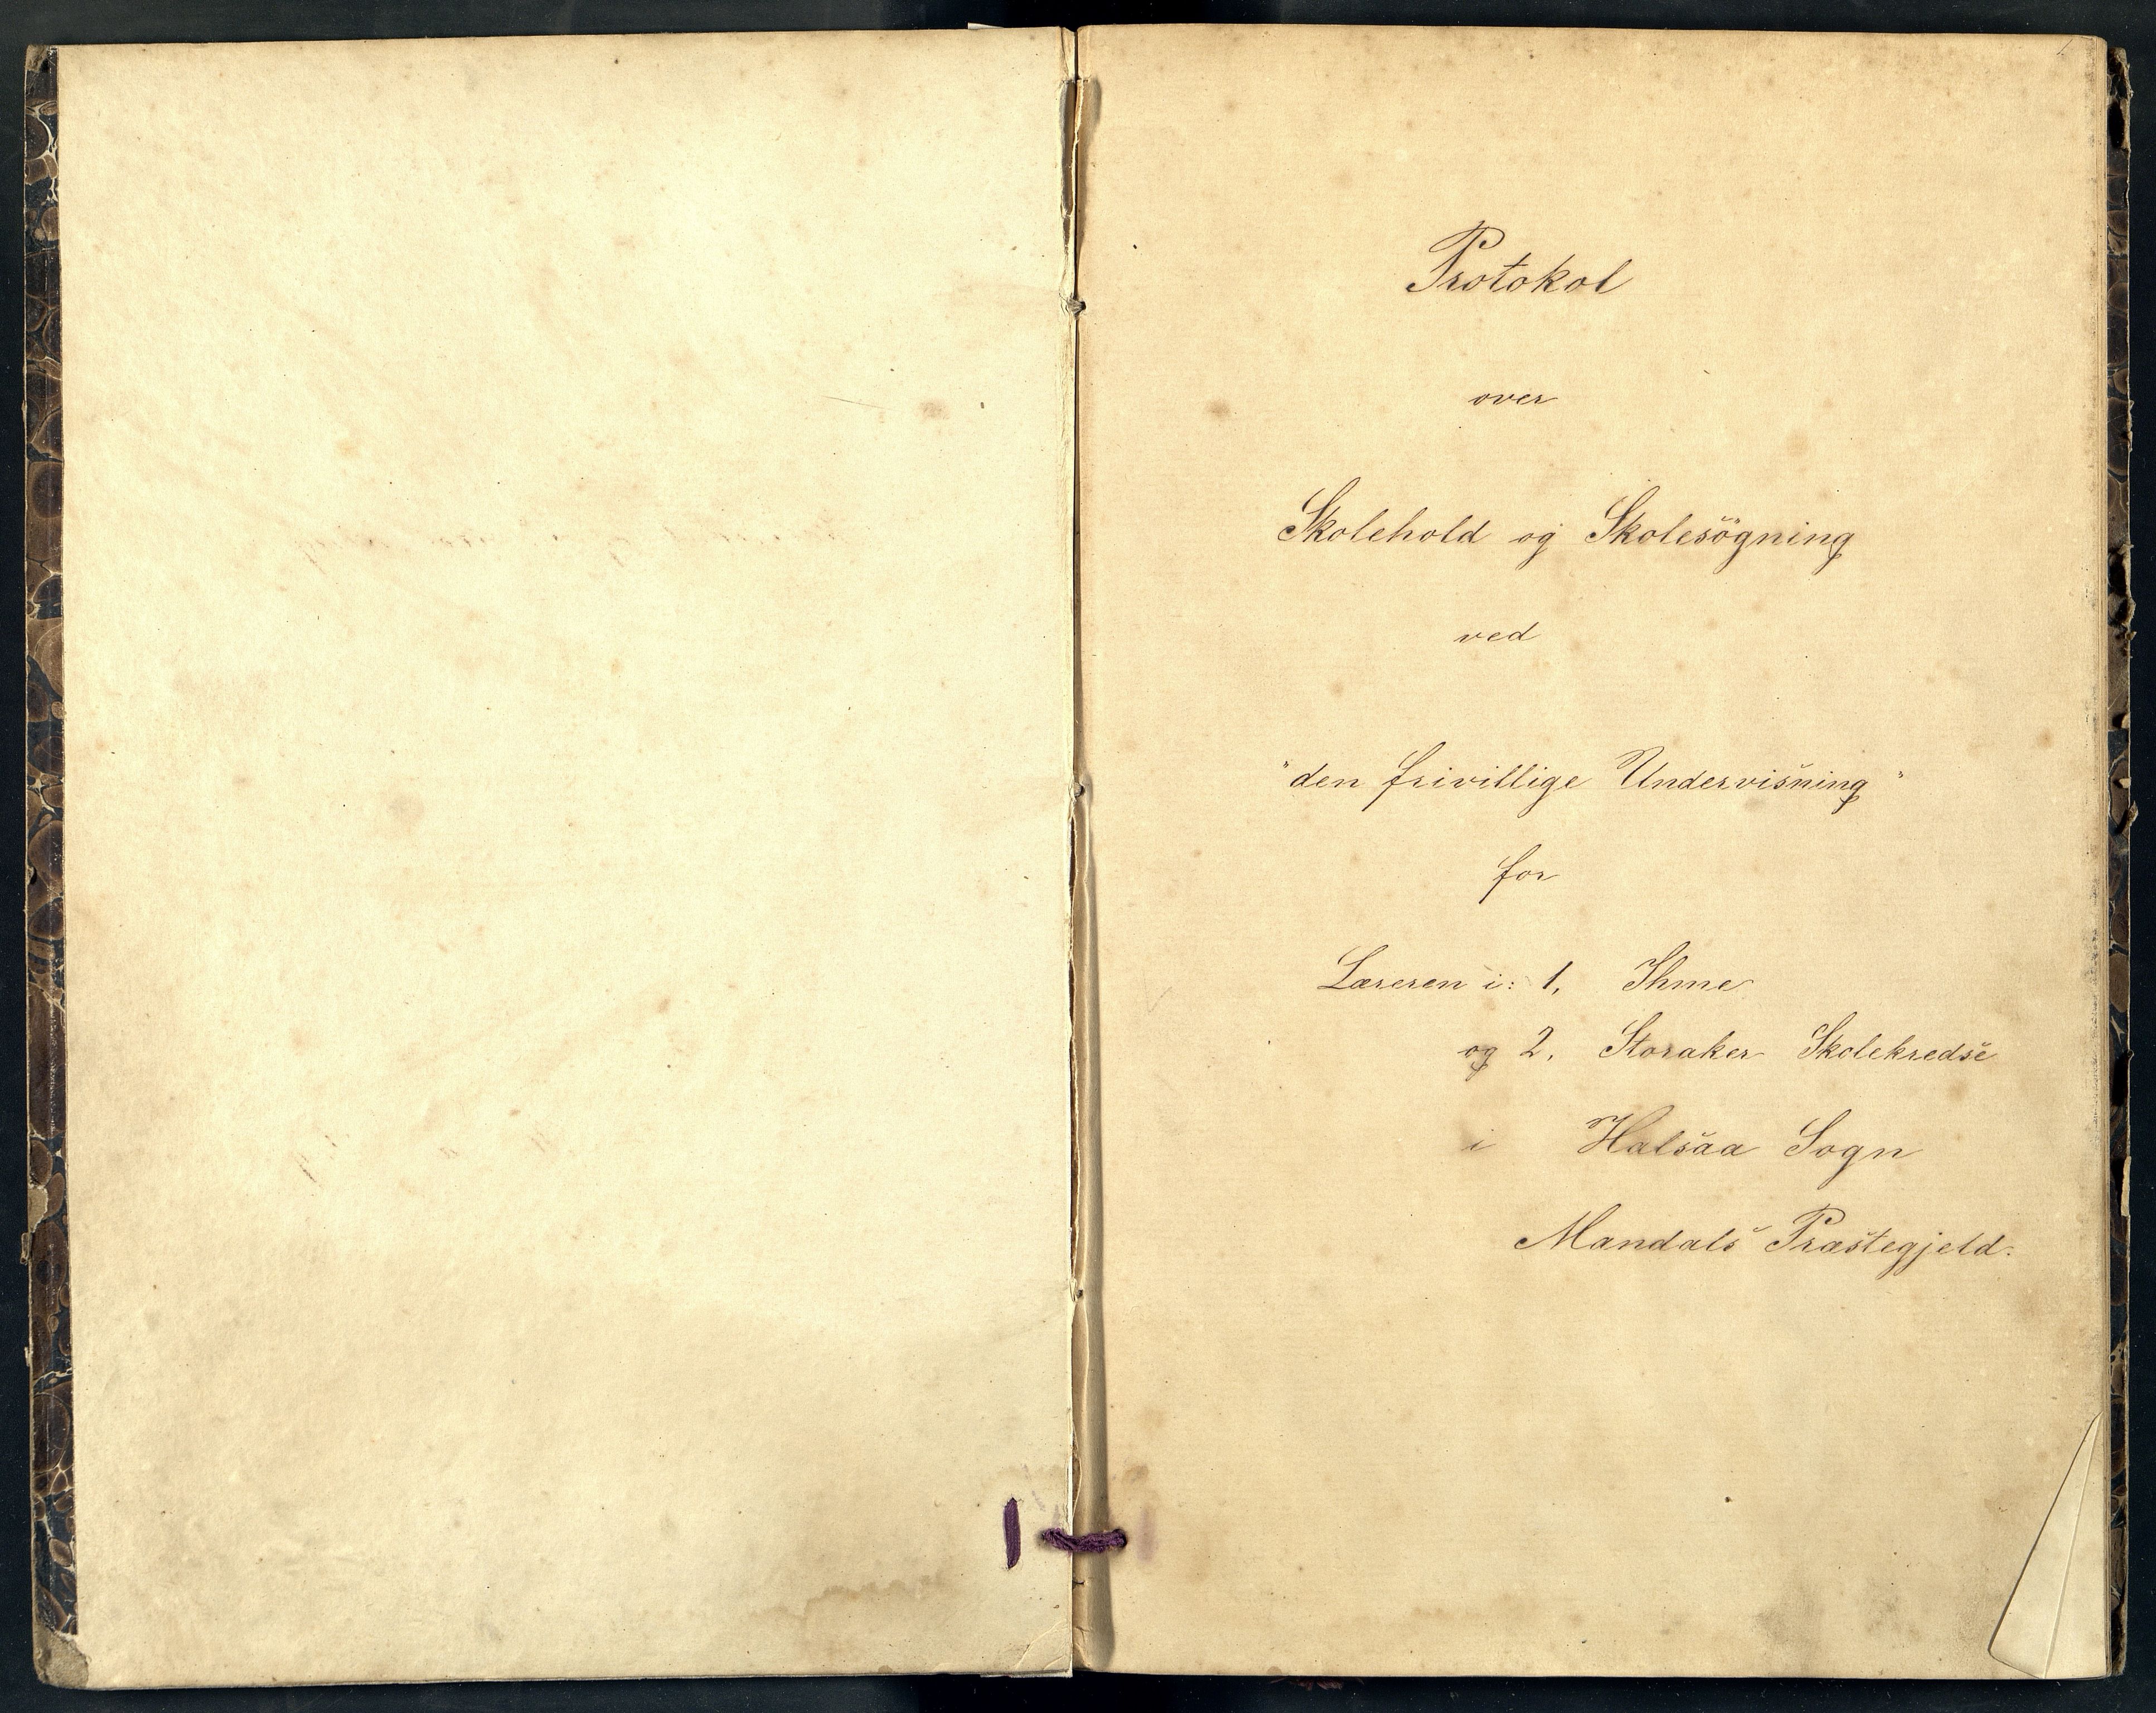 Protokol
over
Skolehold og Skolesögning
ved
"den frivillige Undervisning"
for
Læreren i: 1, Ihme
og 2, Storaker Skolekredse
i Halsaa Sogn
Mandals Præstegjeld.